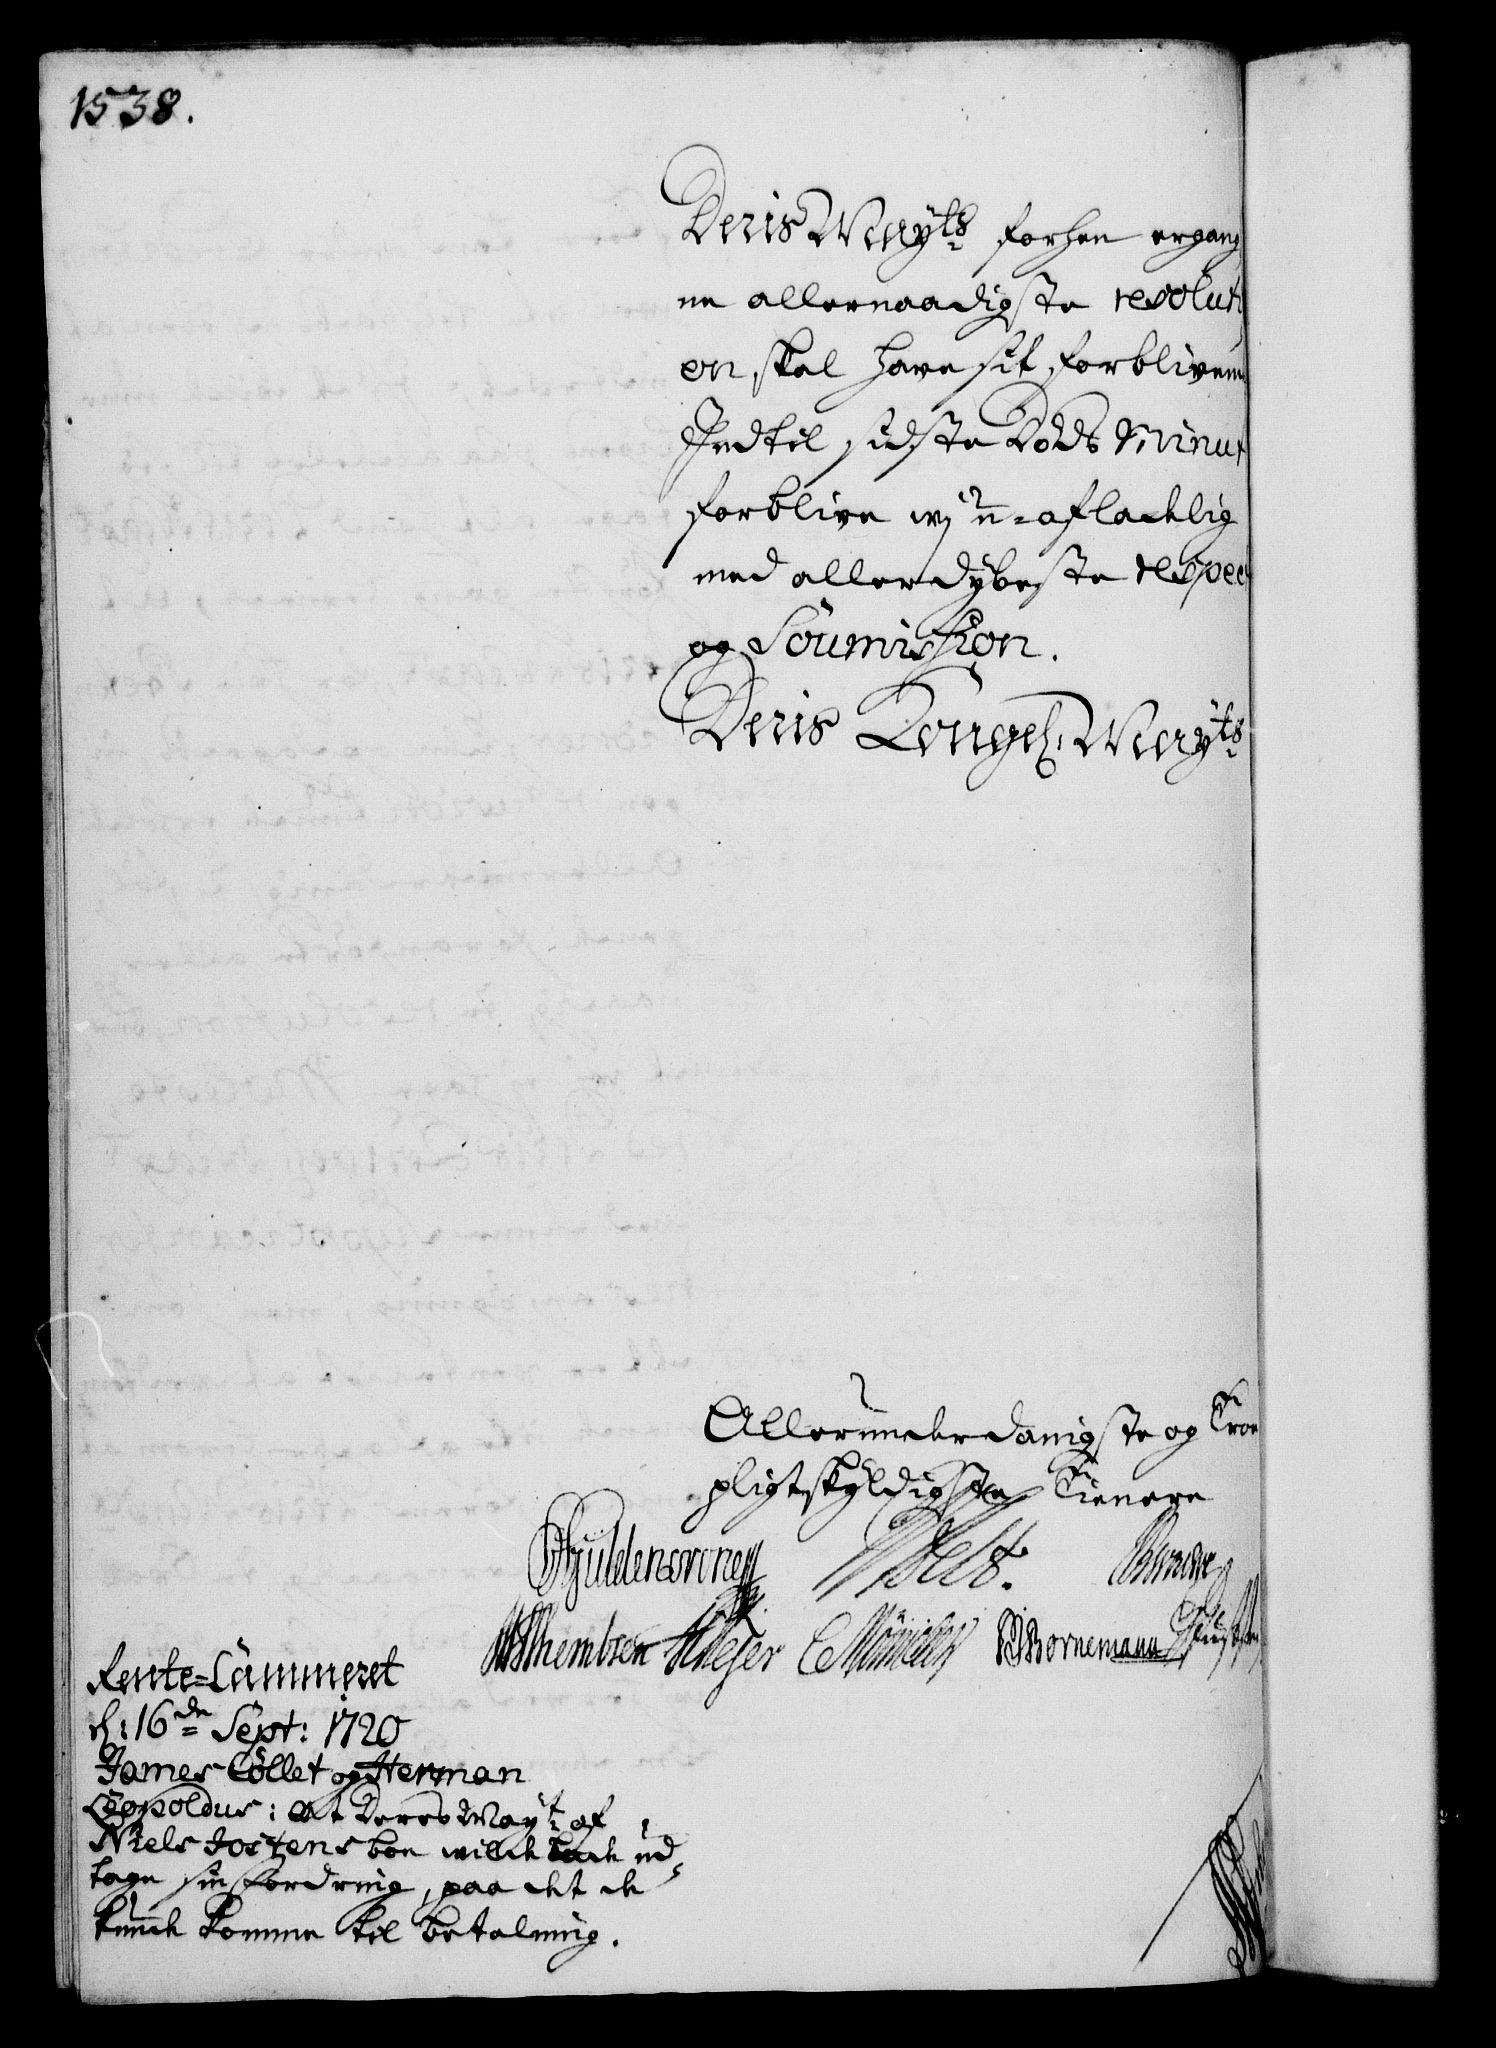 1538.
Deris Mayts forhen ergang
ne allernaadigste resoluti
on skal have sit forblivende
Indtil sidste Döds Minut
forblive vj u-afladelig
med allerdybeste respect
og Soumission.
Deris Kongel. Mayts
Allerunderdanigste og Troe
pligtskyldigste Tienere
Güldencrone
WWilhembsen Meyer C Bornemann
Rente-Cammeret
d: 16de Sept: 1720
James Collet og Herman
Leopoldus: at Deres Mayt af
Niels Jostens boe vilde lade ud
tage sin fordring, paa det de
kunde komme til betalning.